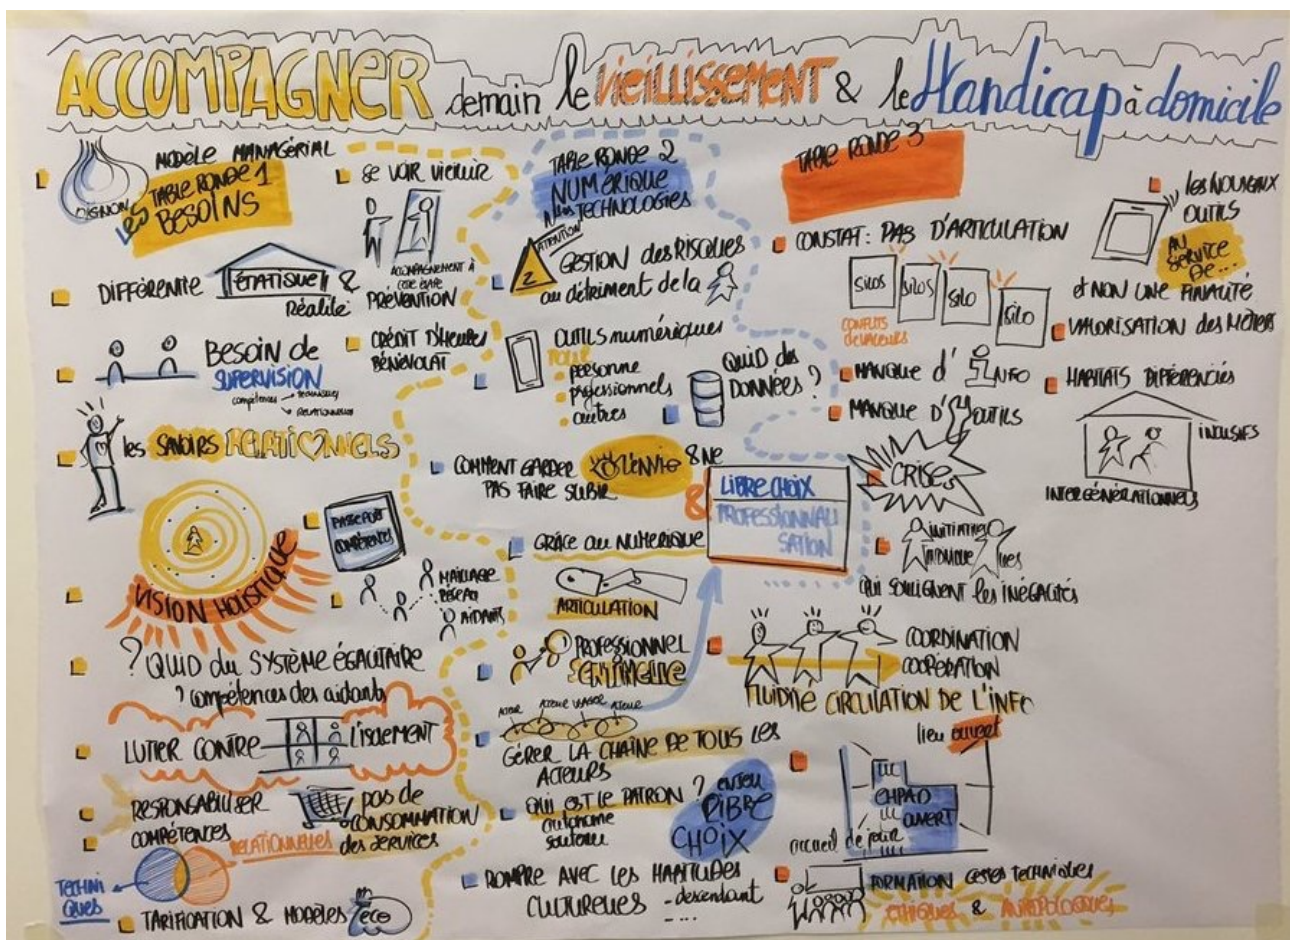 ACCOMPAGNER demain le VIEILLISSEMENT & le Handicap à domicile
MODÈLE MANAGÉRIAL
OIGNON
TABLE RONDE 1
LES BESOINS
SE VOIR VIEILLIR
ACCOMPAGNEMENT À
PRÉVENTION
DIFFÉRENTE ÉTATIQUE &
Réalité
CRÉDIT D'HEURES
BÉNÉVOLAT
BESOIN de
SUPERVISION
compétences
TECHNIQUES
RELATIONNELLES
les SAVOIRS RELATIONNELS
VISION HOLISTIQUE
PASSEPORT
COMPÉTENCES
MAILLAGE
RÉSEAU
AIDANTS
? QUID du SYSTÈME ÉGALITAIRE
? compétences des aidants
LUTTER CONTRE L'ISOLEMENT
RESPONSABILISER
pas de
CONSOMMATION
des SERVICES
COMPÉTENCES
RELATIONNELLES
TECHNI
QUES
TARIFICATION & MODÈLES éco
TABLE RONDE 2
NUMÉRIQUE
Nlles TECHNOLOGIES
ATTENTION
2
GESTION des RISQUES
au détriment de la
OUTILS numériques
POUR
personne
professionnels
autres
QUID des
DONNÉES ?
COMMENT GARDER L'ENVIE & NE
PAS FAIRE SUBIR
&
LIBRE CHOIX
PROFESSIONNALI
SATION
GRÂCE au NUMÉRIQUE
ARTICULATION
PROFESSIONNEL
ACTEUR ACTEUR USAGER ACTEUR
GÉRER LA CHAÎNE DE TOUS LES
ACTEURS
QUI EST LE PATRON ?
autonome
soutenu
enjeu
LIBRE
CHOIX
ROMPRE AVEC LES HABITUDES
CULTURELLES - descendant
- ....
TABLE RONDE 3
CONSTAT : PAS D'ARTICULATION
SILOS
SILOS
SILO
SILO
CONFLITS
de VALEURS
MANQUE d' INFO
MANQUE D'OUTILS
CRISE
INITIATIVES
QUI SOULIGNENT les INÉGALITÉS
COORDINATION
COOPÉRATION
FLUIDITÉ CIRCULATION DE L'INFO
lieu ouvert
EHPAD
OUVERT
accueil de jour
FORMATION GESTES TECHNIQUES
ETHIQUES & ANTROPOLOGIQUES
les NOUVEAUX
OUTILS
AU
SERVICE
DE...
et NON UNE FINALITÉ
VALORISATION des MÉTIERS
HABITATS DIFFÉRENCIÉS
INCLUSIFS
INTERGÉNÉRATIONNELS